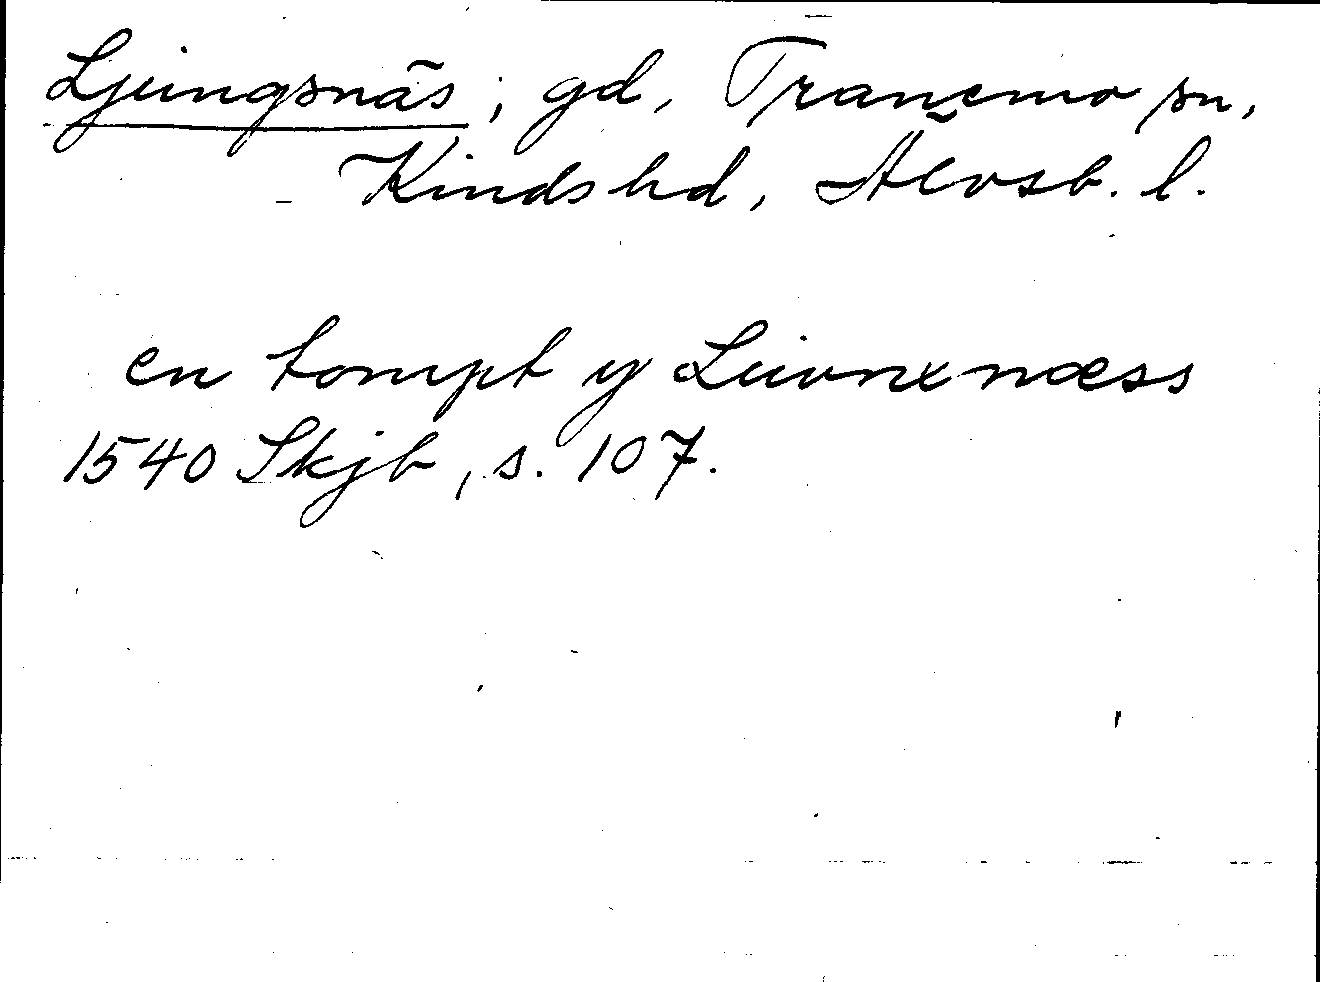 Ljungsnäs, gd, Tranemo sn,
Kinds hd, Älvsb. l.
en tompt y Liuvnxnæss
1540 Skjb, s. 107.